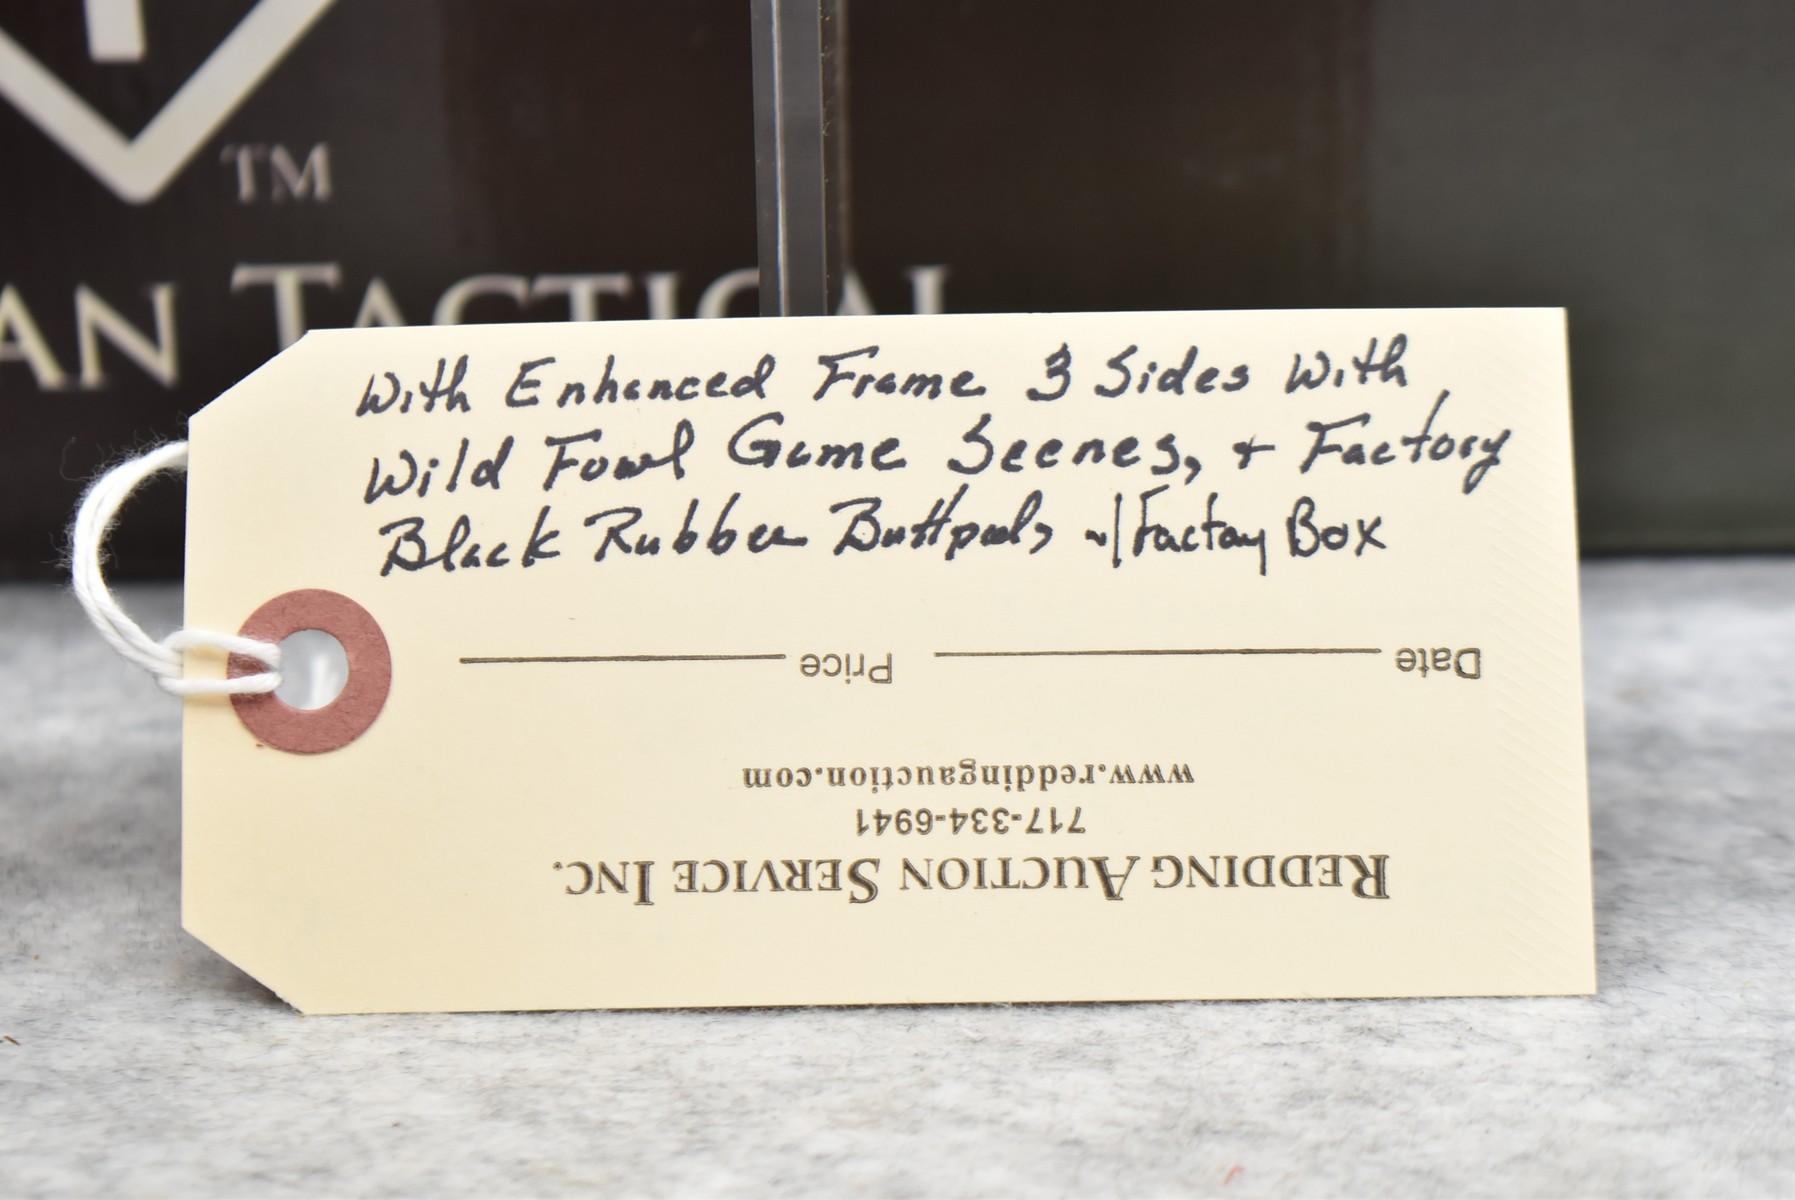 TM
AN TACTICAL
With Enhanced Frame 3 Sides With
Wild Fowl Game Scenes, + Factory
Black Rubber Buttpads w/Factory Box
Date Price
www.reddingauction.com
717-334-6941
REDDING AUCTION SERVICE INC.